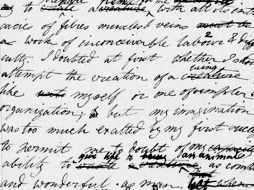 for the
with all
cacies of fibres muscles & veins
a work of inconceivable labour & diffi
culty I doubted at first whether I
attempt the creation of a creature being
like myself or one of simpler
organization; but my imagination
was too much exalted by my first succe
to permit me to doubt of my
ability to give life to an animal as comp
and wonderful as man. when